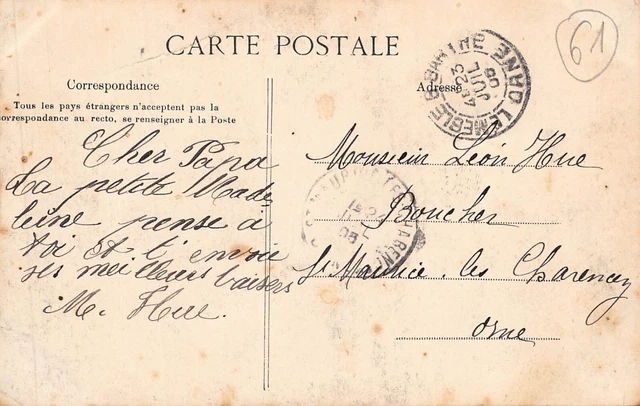 CARTE POSTALE
Correspondance
Tous les pays étrangers n'acceptent pas la
correspondance au recto, se renseigner à la Poste
Adresse
61
4E 23
JUIL
Cher Papa
La petite Made
leine pense à
toi et t'envoie
ses meilleurs baisers
M. Hue.
Monsieur Léon Hue
Boucher
St Maurice les Charencey
Orne